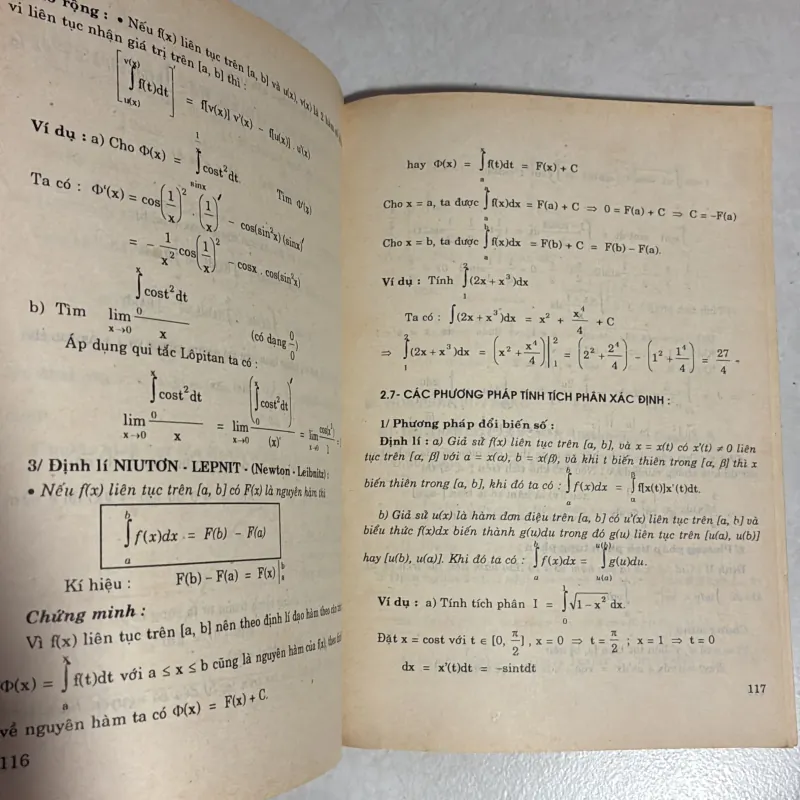 rộng : • Nếu f(x) liên tục trên [a, b] và u(x), v(x) là 2
vi liên tục nhận giá trị trên [a, b] thì :
[∫_{u(x)}^{v(x)} f(t)dt]' = f[v(x)] v'(x) − f[u(x)] . u'(x)
Ví dụ : a) Cho Φ(x) = ∫_{sinx}^{1/x} cost²dt. Tìm Φ'(x)
Ta có : Φ'(x) = cos(1/x)² . (1/x)' − cos(sin²x)(sinx)'
= − 1/x² cos(1/x)² − cosx . cos(sin²x)
b) Tìm lim_{x→0} ∫_0^x cost²dt / x (có dạng 0/0)
Áp dụng qui tắc Lôpitan ta có :
lim_{x→0} ∫_0^x cost²dt / x = lim_{x→0} (∫_0^x cost²dt)' / (x)' = lim_{x→0}
3/ Định lí NIUTƠN - LEPNIT - (Newton - Leibnitz) :
• Nếu f(x) liên tục trên [a, b] có F(x) là nguyên hàm thì
∫_a^b f(x)dx = F(b) − F(a)
Kí hiệu : F(b) − F(a) = F(x)|_a^b
Chứng minh :
Vì f(x) liên tục trên [a, b] nên theo định lí đạo hàm theo
Φ(x) = ∫_a^x f(t)dt với a ≤ x ≤ b cũng là nguyên hàm của f(x), theo
về nguyên hàm ta có Φ(x) = F(x) + C.
116
hay Φ(x) = ∫_a^x f(t)dt = F(x) + C
Cho x = a, ta được ∫_a^a f(x)dx = F(a) + C ⇒ 0 = F(a) + C ⇒ C = −F(a)
Cho x = b, ta được ∫_a^b f(x)dx = F(b) + C = F(b) − F(a).
Ví dụ : Tính ∫_1^2 (2x + x³)dx
Ta có : ∫(2x + x³)dx = x² + x⁴/4 + C
⇒ ∫_1^2 (2x + x³)dx = (x² + x⁴/4)|_1^2 = (2² + 2⁴/4) − (1² + 1⁴/4) = 27/4 .
2.7- CÁC PHƯƠNG PHÁP TÍNH TÍCH PHÂN XÁC ĐỊNH :
1/ Phương pháp đổi biến số :
Định lí : a) Giả sử f(x) liên tục trên [a, b], và x = x(t) có x'(t) ≠ 0 liên
tục trên [α, β] với a = x(α), b = x(β), và khi t biến thiên trong [α, β] thì x
biến thiên trong [a, b], khi đó ta có : ∫_a^b f(x)dx = ∫_α^β f[x(t)]x'(t)dt.
b) Giả sử u(x) là hàm đơn điệu trên [a, b] có u'(x) liên tục trên [a, b] và
biểu thức f(x)dx biến thành g(u)du trong đó g(u) liên tục trên [u(a), u(b)]
hay [u(b), u(a)]. Khi đó ta có : ∫_a^b f(x)dx = ∫_{u(a)}^{u(b)} g(u)du.
Ví dụ : a) Tính tích phân I = ∫_0^1 √(1 − x²) dx.
Đặt x = cost với t ∈ [0, π/2] , x = 0 ⇒ t = π/2 ; x = 1 ⇒ t = 0
dx = x'(t)dt = −sintdt
117